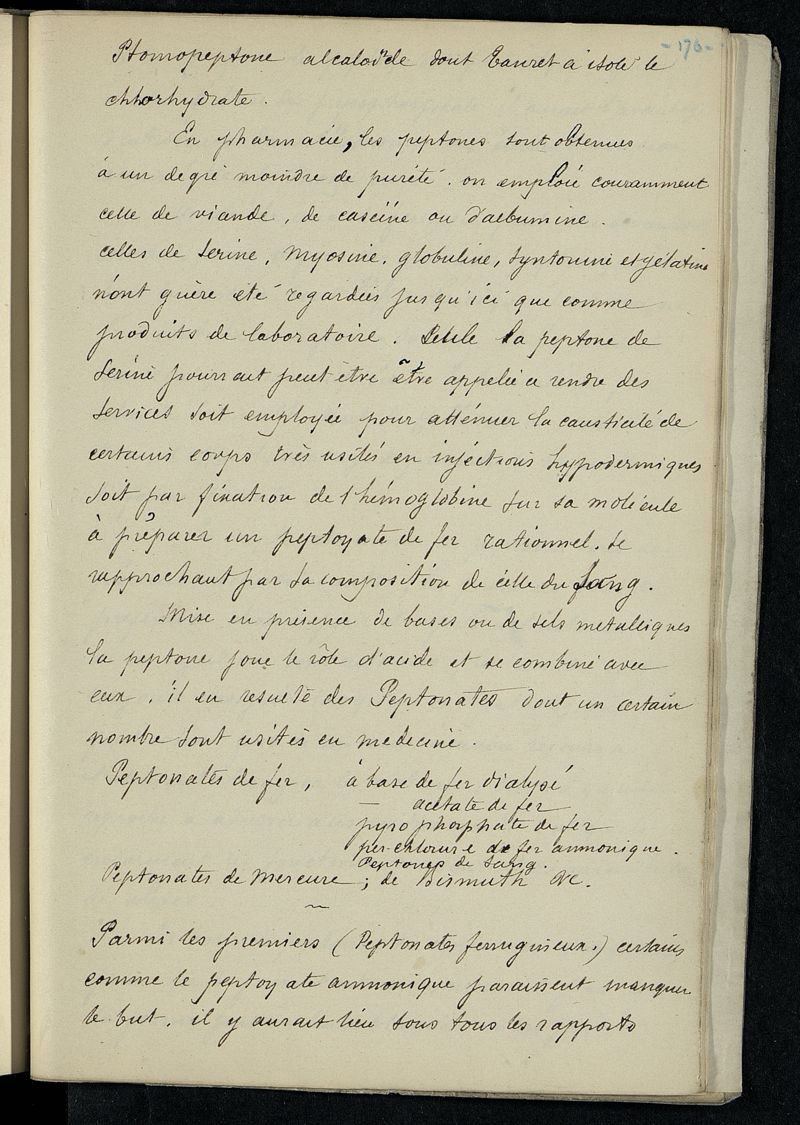 - 176 -
Ptomopeptone alcaloïde dont Tanret a isolé le
chlorhydrate.
En pharmacie, les peptones sont obtenues
à un degré moindre de pureté. on emploie couramment
celle de viande, de caséine ou d'albumine.
celles de Serine, Myosine, globuline, Syntonine et gélatine
n'ont guère été regardées jusqu'ici que comme
produits de laboratoire. Seule la peptone de
Serine pourrait peut être être appelée a rendre des
Services soit employée pour atténuer la causticité de
certains corps très usités en injections hypodermiques
soit par fixation de l'hémoglobine sur sa molécule
à préparer un peptoyate de fer rationnel. se
rapprochant par sa composition de celle du Sang.
Mise en présence de bases ou de sels métalliques
la peptone joue le rôle d'acide et se combine avec
eux, il en resulte des Peptonates dont un certain
nombre sont usités en medecine.
Peptonates de fer, à base de fer dialysé
— acétate de fer
pyrophosphate de fer
per-chlorure de fer ammonique.
Peptones de Sang.
Peptonates de Mercure; de Bismuth &c.
~
Parmi les premiers (Peptonates ferrugineux.) certains
comme le peptoyate ammonique paraissent manquer
le but. il y aurait lieu sous tous les rapports